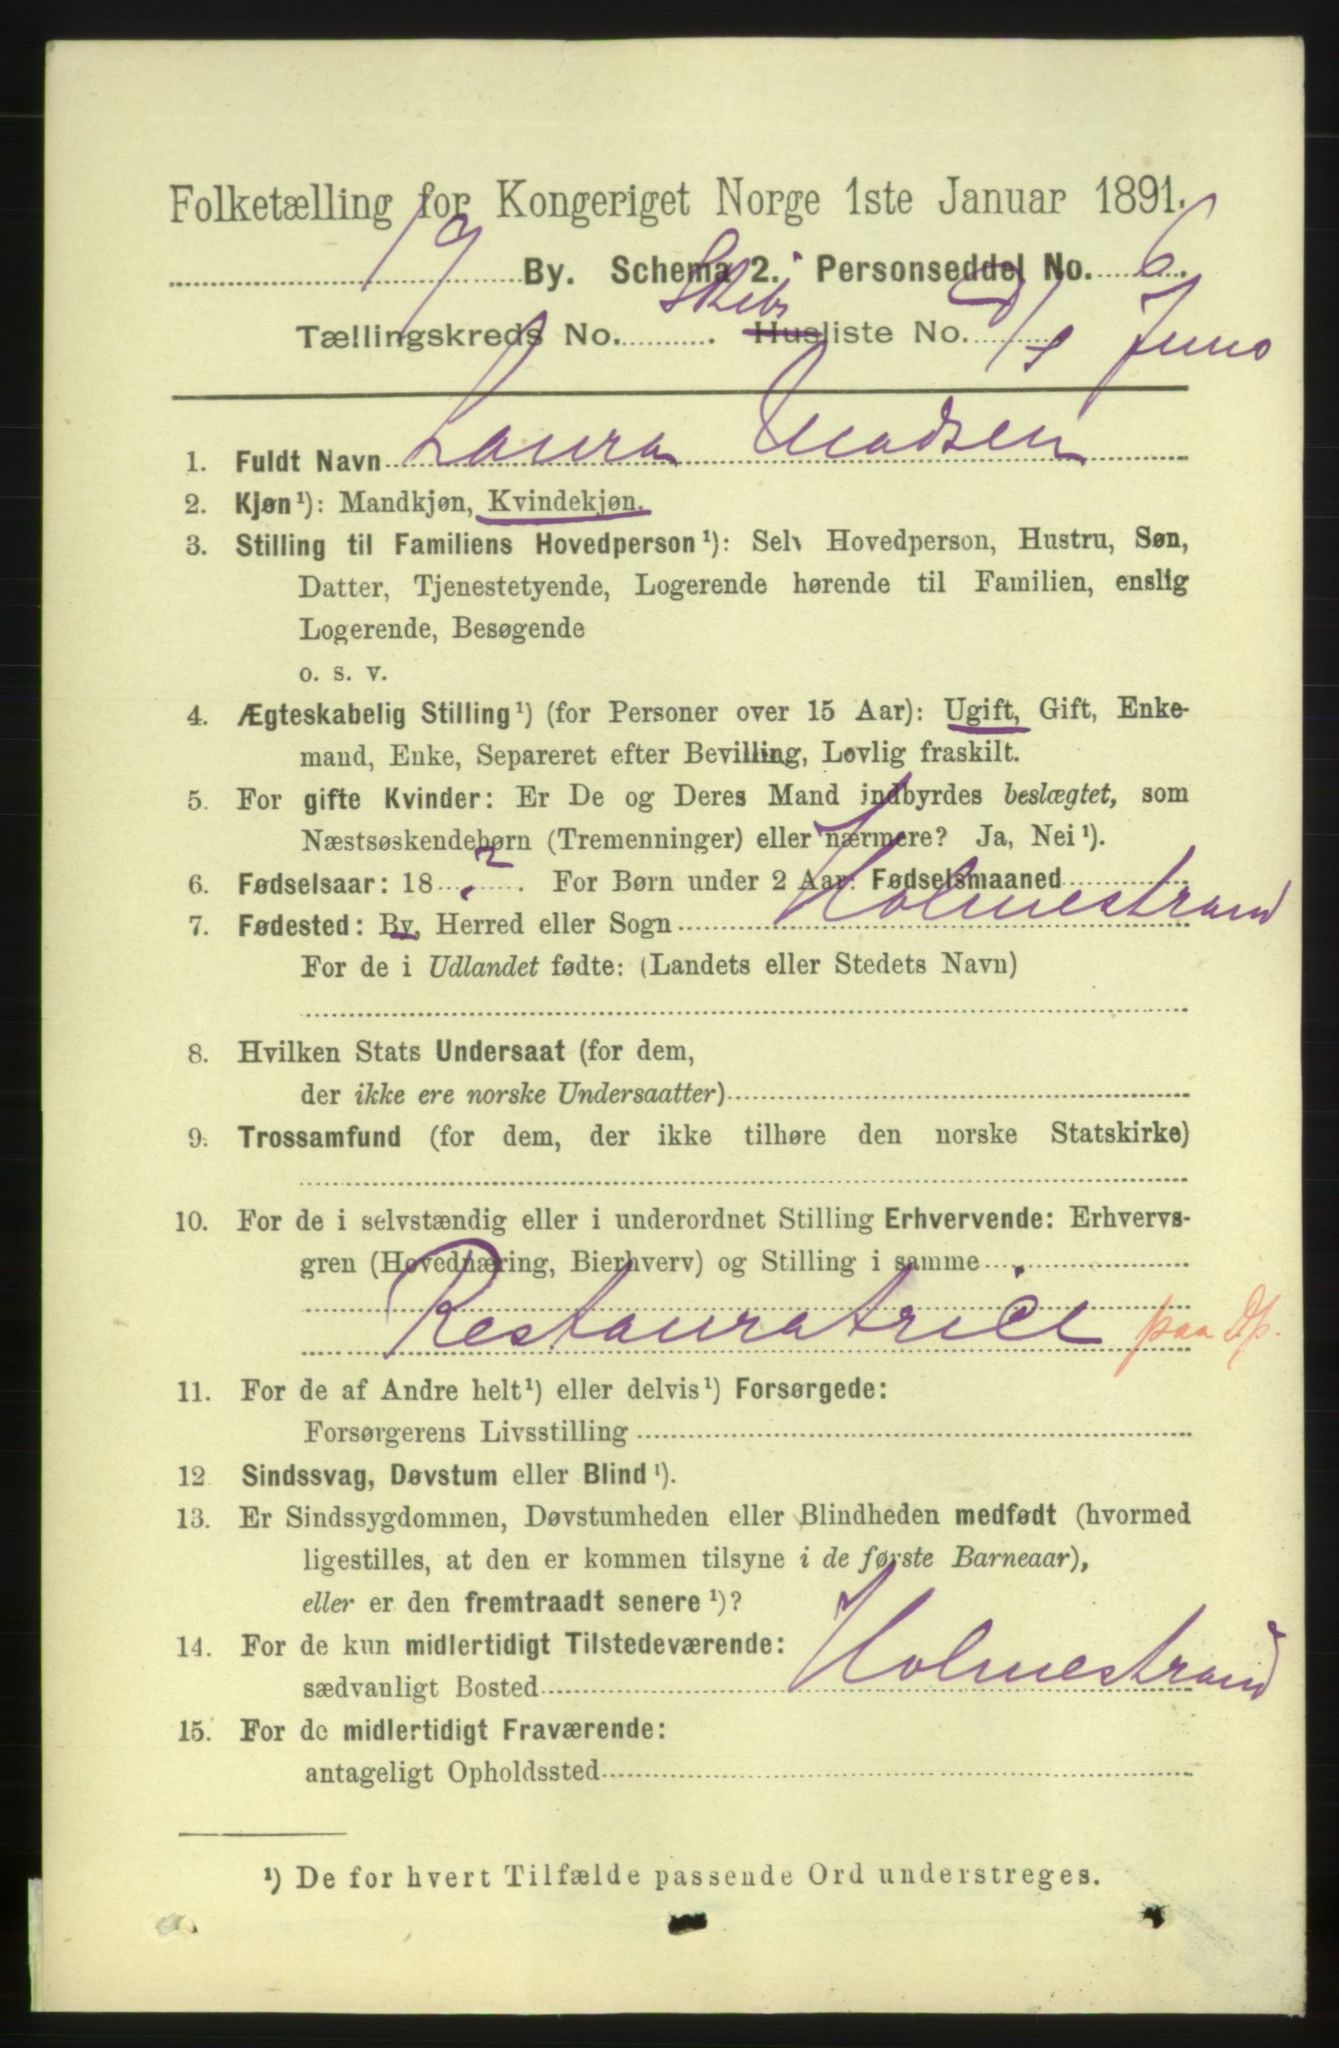 Folketælling for Kongeriget Norge 1ste Januar 1891.
19 By. Schema 2. Personseddel No. 6.
Tællingskreds No. . Skibs Husliste No. D/S Juno
1. Fuldt Navn Laura Madsen
2. Kjøn¹): Mandkjøn, Kvindekjøn.
3. Stilling til Familiens Hovedperson¹): Selv Hovedperson, Hustru, Søn,
Datter, Tjenestetyende, Logerende hørende til Familien, enslig
Logerende, Besøgende
o. s. v.
4. Ægteskabelig Stilling¹) (for Personer over 15 Aar): Ugift, Gift, Enke-
mand, Enke, Separeret efter Bevilling, Lovlig fraskilt.
5. For gifte Kvinder: Er De og Deres Mand indbyrdes beslægtet, som
Næstsøskendebørn (Tremenninger) eller nærmere? Ja, Nei¹).
6. Fødselsaar: 18 ? . For Børn under 2 Aar: Fødselsmaaned
7. Fødested: By, Herred eller Sogn Holmestrand
For de i Udlandet fødte: (Landets eller Stedets Navn)
8. Hvilken Stats Undersaat (for dem,
der ikke ere norske Undersaatter)
9. Trossamfund (for dem, der ikke tilhøre den norske Statskirke)
10. For de i selvstændig eller i underordnet Stilling Erhvervende: Erhvervs-
gren (Hovednæring, Bierhverv) og Stilling i samme
Restauratrice paa D/p.
11. For de af Andre helt¹) eller delvis¹) Forsørgede:
Forsørgerens Livsstilling
12 Sindssvag, Døvstum eller Blind¹).
13. Er Sindssygdommen, Døvstumheden eller Blindheden medfødt (hvormed
ligestilles, at den er kommen tilsyne i de første Barneaar),
eller er den fremtraadt senere¹)?
14. For de kun midlertidigt Tilstedeværende:
sædvanligt Bosted Holmestrand
15. For de midlertidigt Fraværende:
antageligt Opholdssted
¹) De for hvert Tilfælde passende Ord understreges.